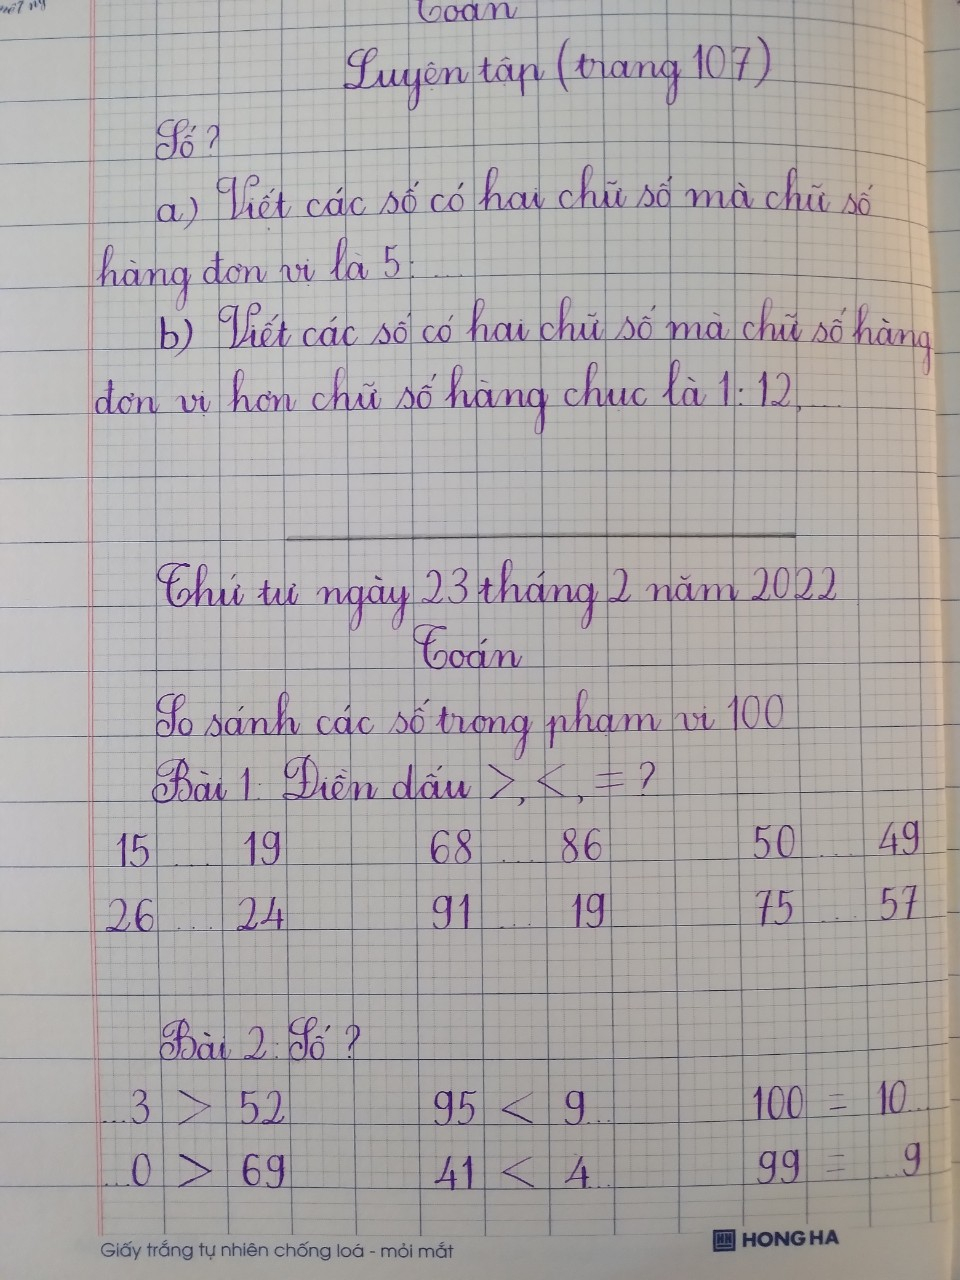 Toán
Luyện tập (trang 107)
Số?
a) Viết các số có hai chữ số mà chữ số
hàng đơn vị là 5: ....
b) Viết các số có hai chữ số mà chữ số hàng
đơn vị hơn chữ số hàng chục là 1: 12, ....
Thứ tư ngày 23 tháng 2 năm 2022
Toán
So sánh các số trong phạm vi 100
Bài 1: Điền dấu >, <, = ?
15 .... 19 68 .... 86 50 .... 49
26 .... 24 91 .... 19 75 .... 57
Bài 2: Số ?
...3 > 52 95 < 9... 100 = 10...
...0 > 69 41 < 4... 99 = ...9
Giấy trắng tự nhiên chống loá - mỏi mắt HH HONG HA